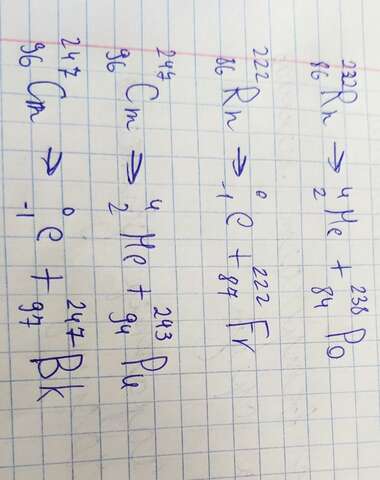 ²³²₈₆Rn → ⁴₂He + ²³⁸₈₄Po
²²²₈₆Rn → ⁰₋₁e + ²²²₈₇Fr
²⁴⁷₉₆Cm → ⁴₂He + ²⁴³₉₄Pu
²⁴⁷₉₆Cm → ⁰₋₁e + ²⁴⁷₉₇Bk